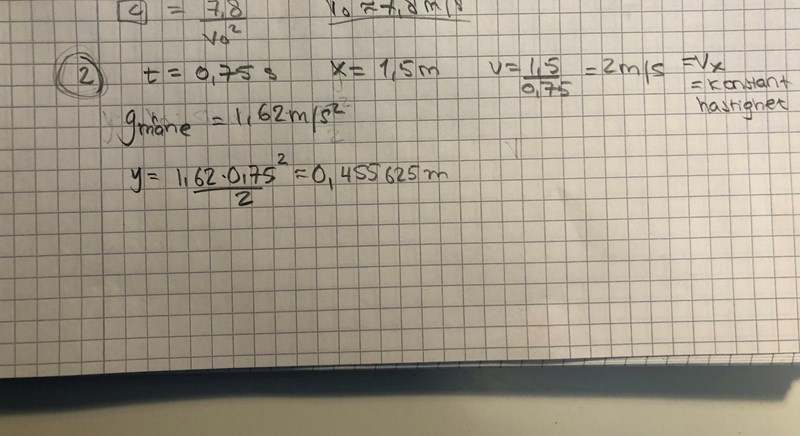 = 7,8
v₀²
② t = 0,75 s x = 1,5 m v = 1,5 / 0,75 = 2 m/s = Vx
= konstant
hastighet
gmåne = 1,62 m/s²
y = 1,62 · 0,75² / 2 = 0,455625 m